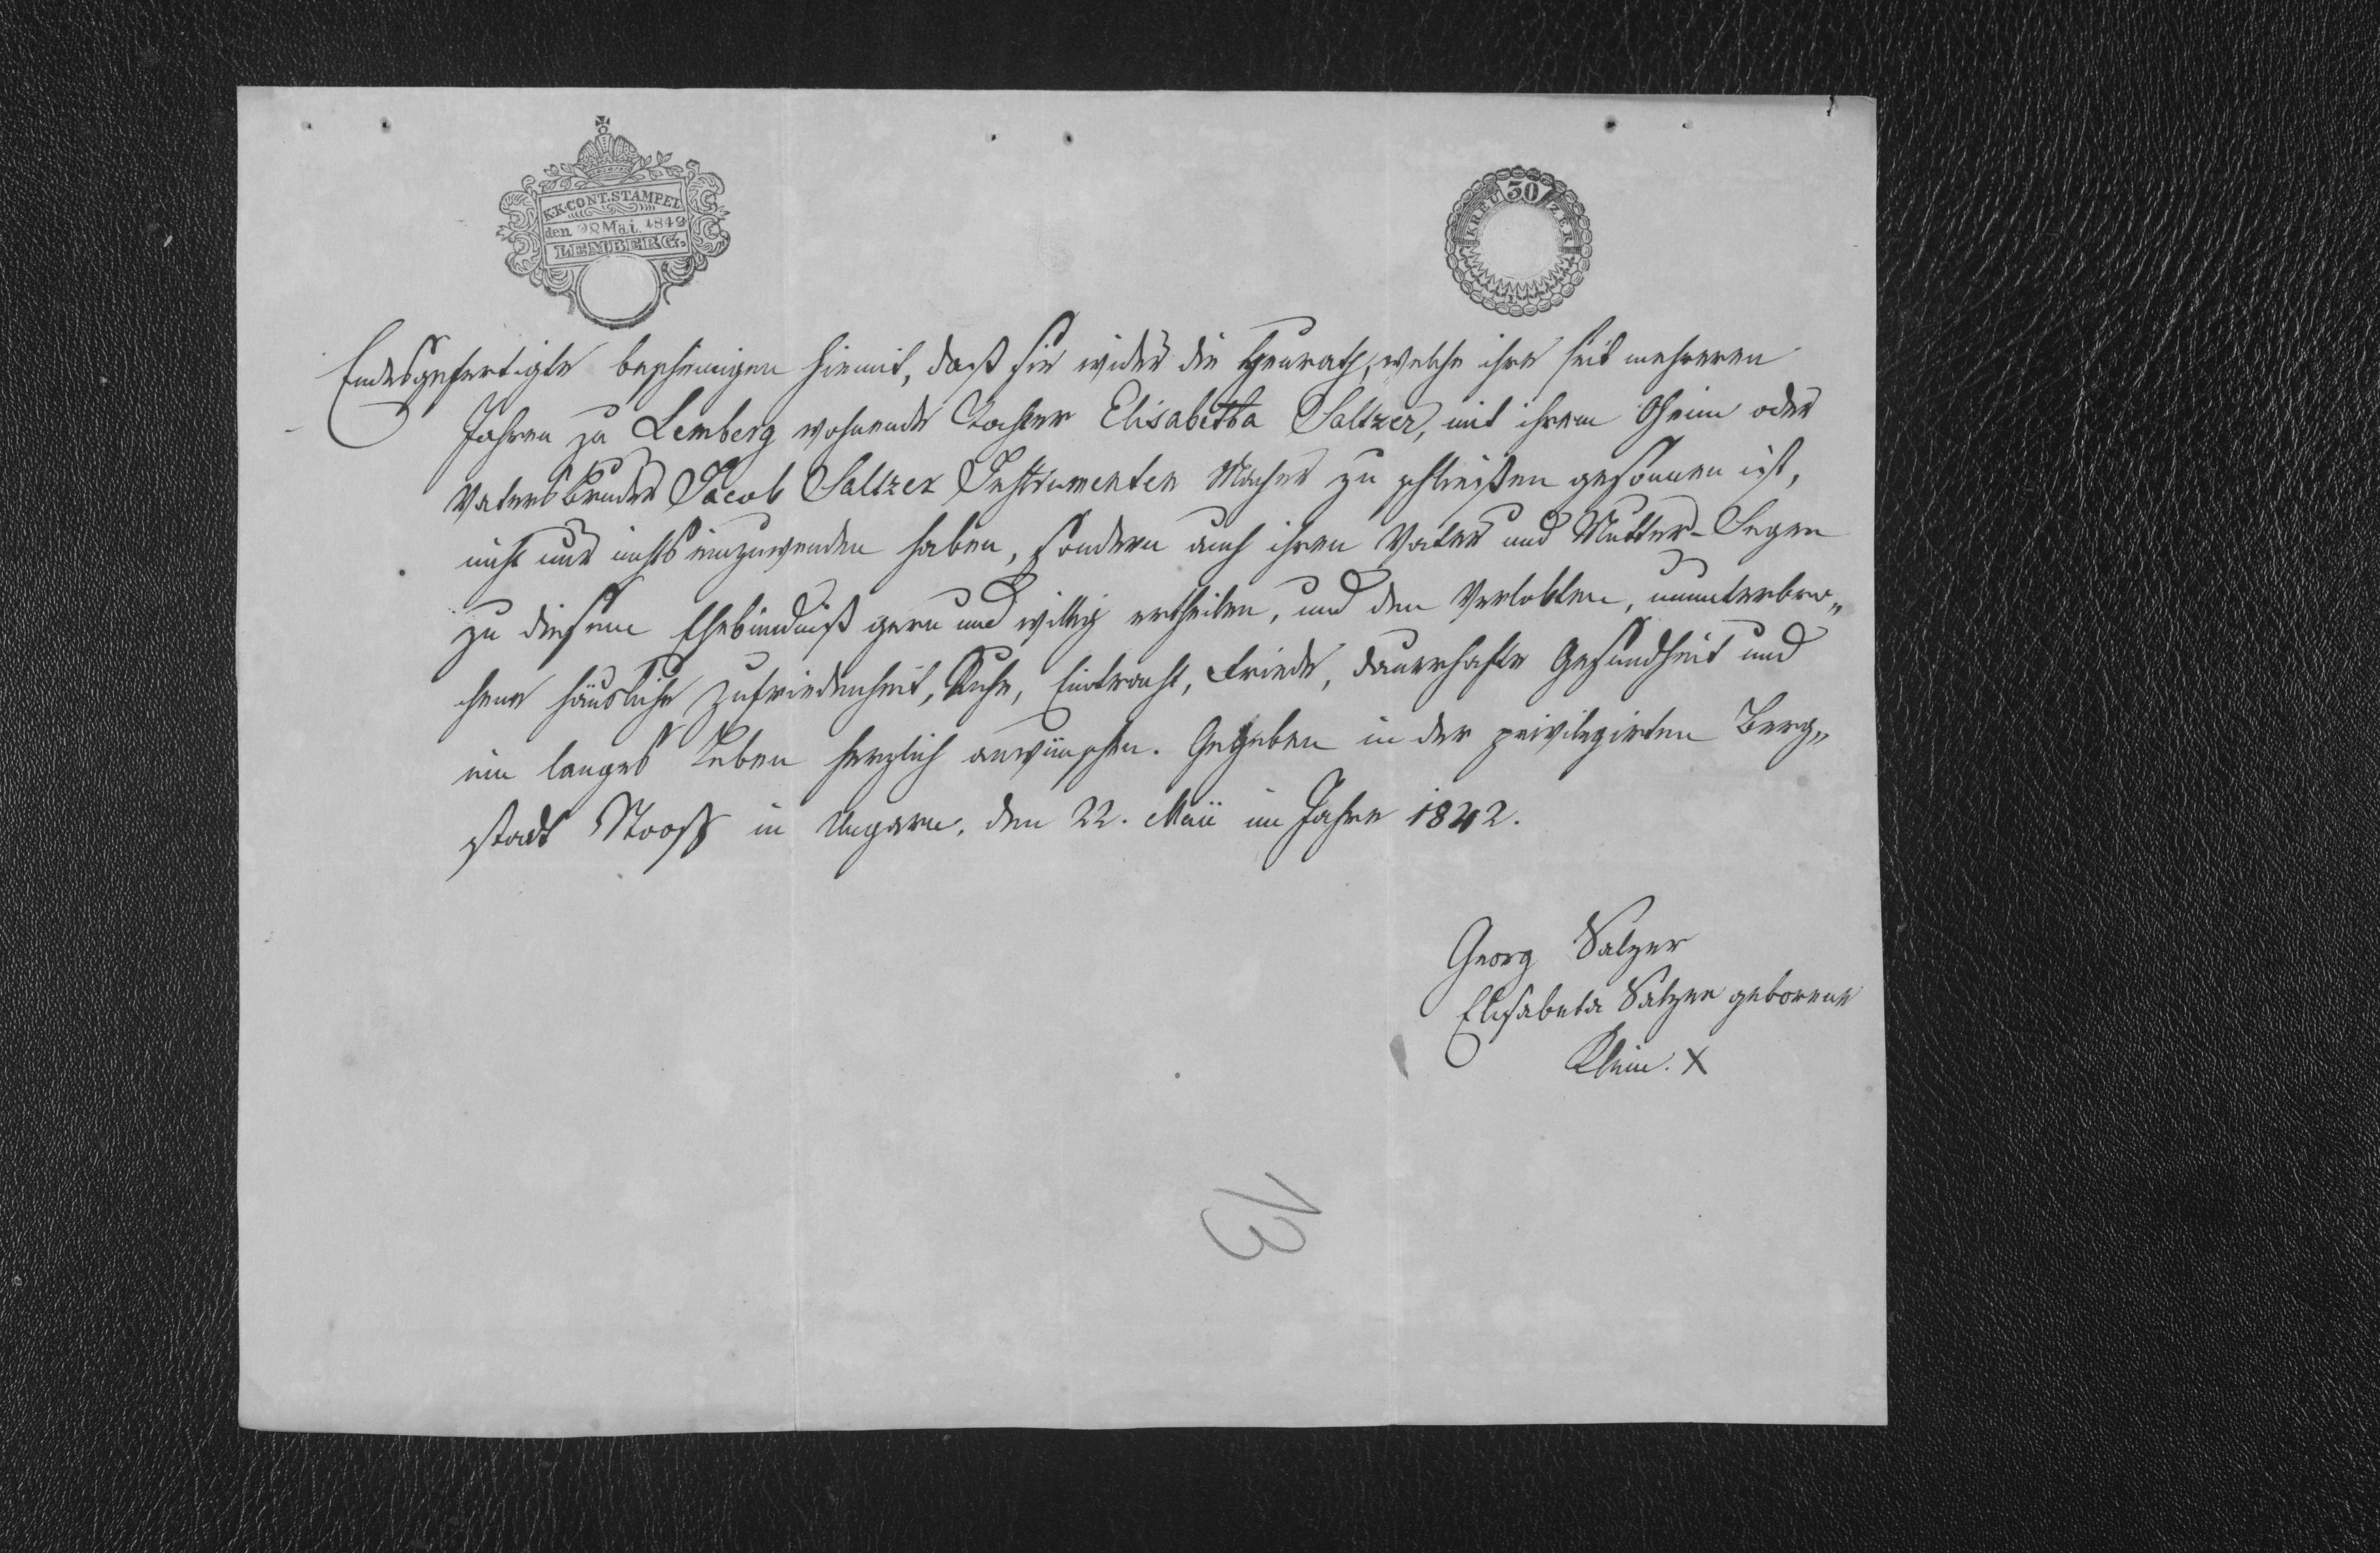 K.K. CONT. STAMPEL
den 28 Mai. 1842
LEMBERG.
30
KREUZER
Endesgefertigte bescheinigen hiemit, daß sie wider die Heurath, welche ihre seit mehreren
Jahren zu Lemberg wohnende Tochter Elisabetha Saltzer, mit ihrem Oheim oder
Vatersbruder Jacob Saltzer Instrumenten Macher zu schließen gesonnen ist,
nicht nur nichts einzuwenden haben, sondern auch ihren Vater und Mutter-Segen
zu diesem Ehebündniß gern und willig ertheilen, und den Verlobten, ununterbro„
chene häusliche Zufriedenheit, Ruhe, Eintracht, Friede, dauerhafte Gesundheit und
ein langes Leben herzlich anwünschen. Gegeben in der privilegirten Berg„
stadt Stooß in Ungarn, den 22. Maii im Jahre 1842.
Georg Salzer
Elisabeta Salzer geborene
Klein. X
13